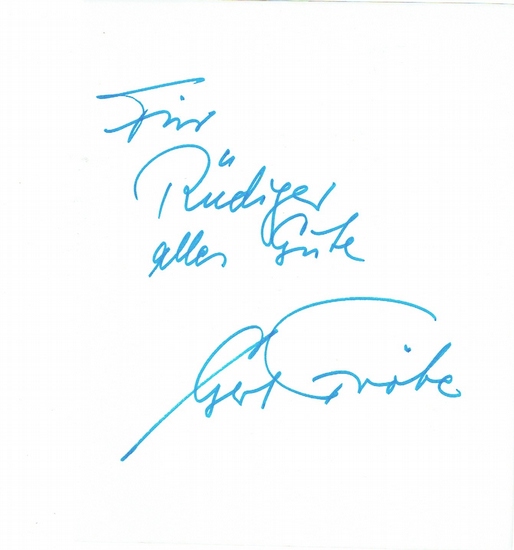 Für
Rüdiger
alles Gute
Gert Fröbe